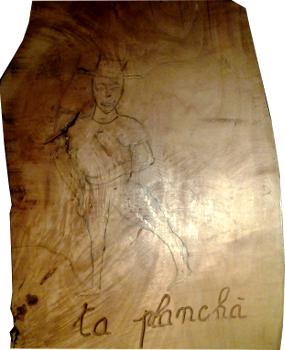 ta planchà